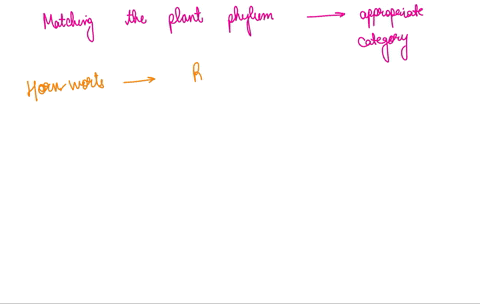 Matching the plant phylum → appropriate
category
Hornworts → R